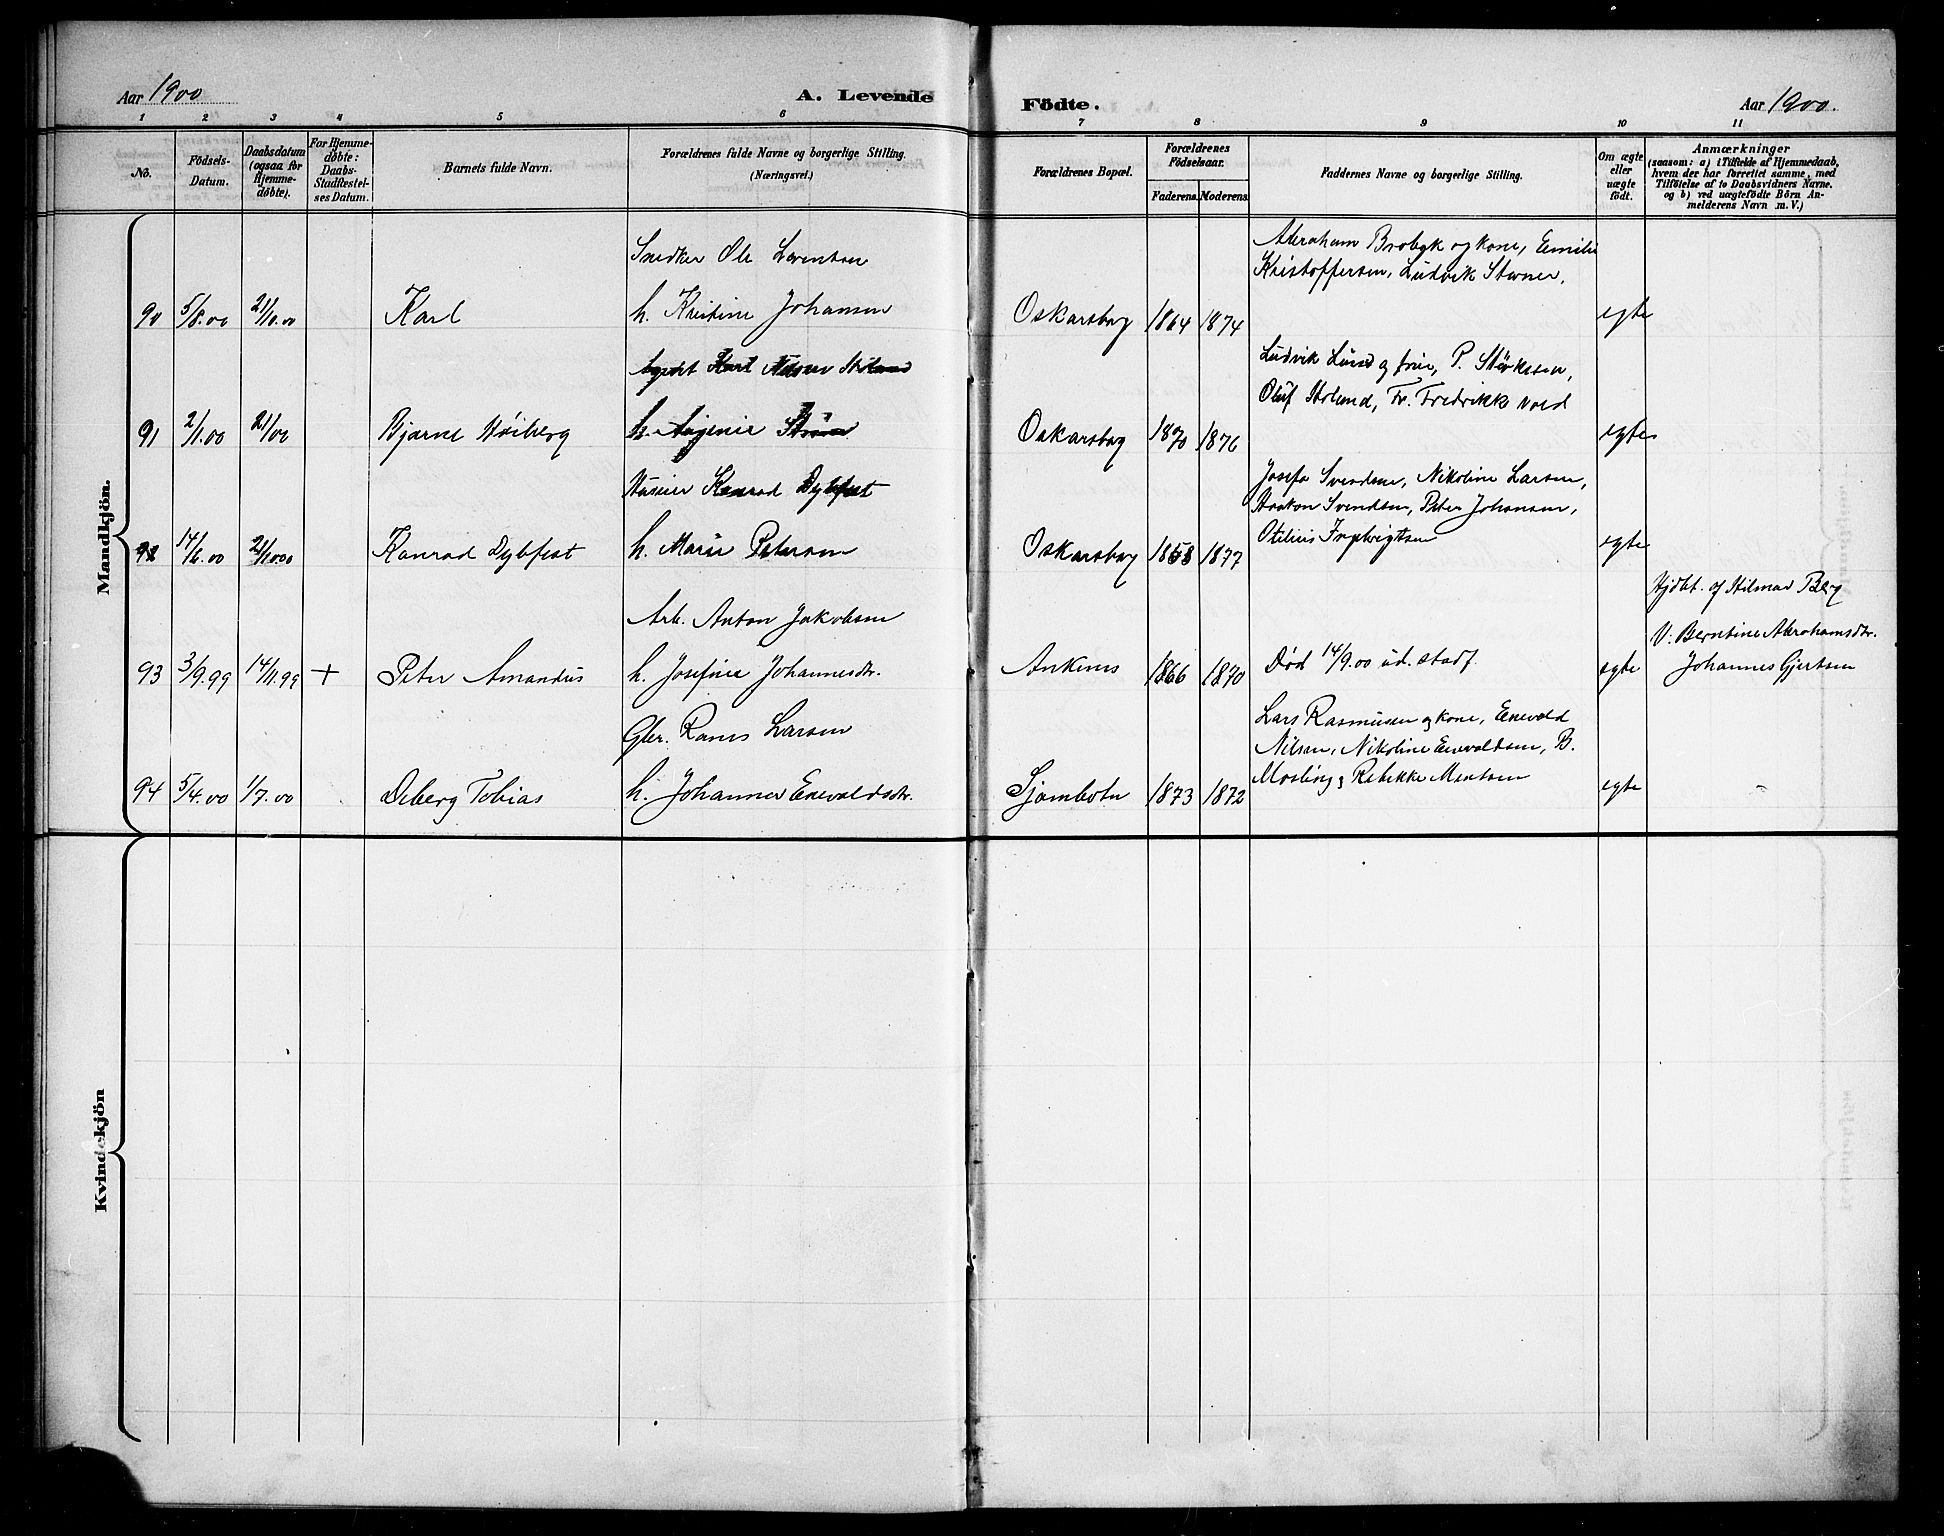 Aar 1900 A. Levende Födte. Aar 1900.
1 2 3 4 5 6 7 8 9 10 11
No.
Födsels-Datum.
Daabsdatum (ogsaa for Hjemme-döbte).
For Hjemme-döbte: Daabs-Stadfæstel-ses Datum.
Barnets fulde Navn.
Forældrenes fulde Navne og borgerlige Stilling. (Næringsvei.)
Forældrenes Bopæl.
Forældrenes Födselsaar.
Faderens. Moderens.
Faddernes Navne og borgerlige Stilling.
Om ægte eller uægte födt.
Anmærkninger
(saasom: a) i Tilfælde af Hjemmedaab,
hvem der har forrettet samme, med
Tilföielse af to Daabsvidners Navne.
og b) ved uægtefödte Börn An-
melderens Navn m. V.)
Mandkjön.
Snedker Ole Lorentsen
Abraham Brobyk og kone, Emilie
Kristoffersen, Ludvik Stener,
90 5/8.00 21/10.00 Karl h. Kristine Johansen Oskarsborg 1864 1874 egte
Agent Karl
Ludvik Lund og frue, P. Störksen,
Oluf Stolund, Fr. Fredrikke Vold
91 2/1.00 21/00 Bjarne Höiberg h. Oskarsborg 1870 1876 egte
Konrad Dybfest
Josefa Svendsen, Nikoline Larsen,
Haakon Svendsen, Peter Johansen,
Otelius
92 14/6.00 21/10.00 Konrad Dybfest h. Marie Petersen Oskarsborg 1858 1877 egte
Arb. Anton Jakobsen
Hjdbt. af Hilmar Berg
V: Berntine Abrahamsdtr.
93 3/9.99 14/11.99 + Peter Amandus h. Josefine Johannesdtr. Ankenes 1866 1870 Död 14/9.00 ud. stadf. egte Johannes Gjertsen
Gbr. Larsen
Lars Rasmusen og kone, Enevold
Nilsen, Nikoline Enevoldsen, B.
94 5/4.00 1/7.00 Deberg Tobias h. Johanne Enevoldsdtr. Sjombotn 1873 1872 Mosling, Rebekke Mentsen egte
Kvindekjön